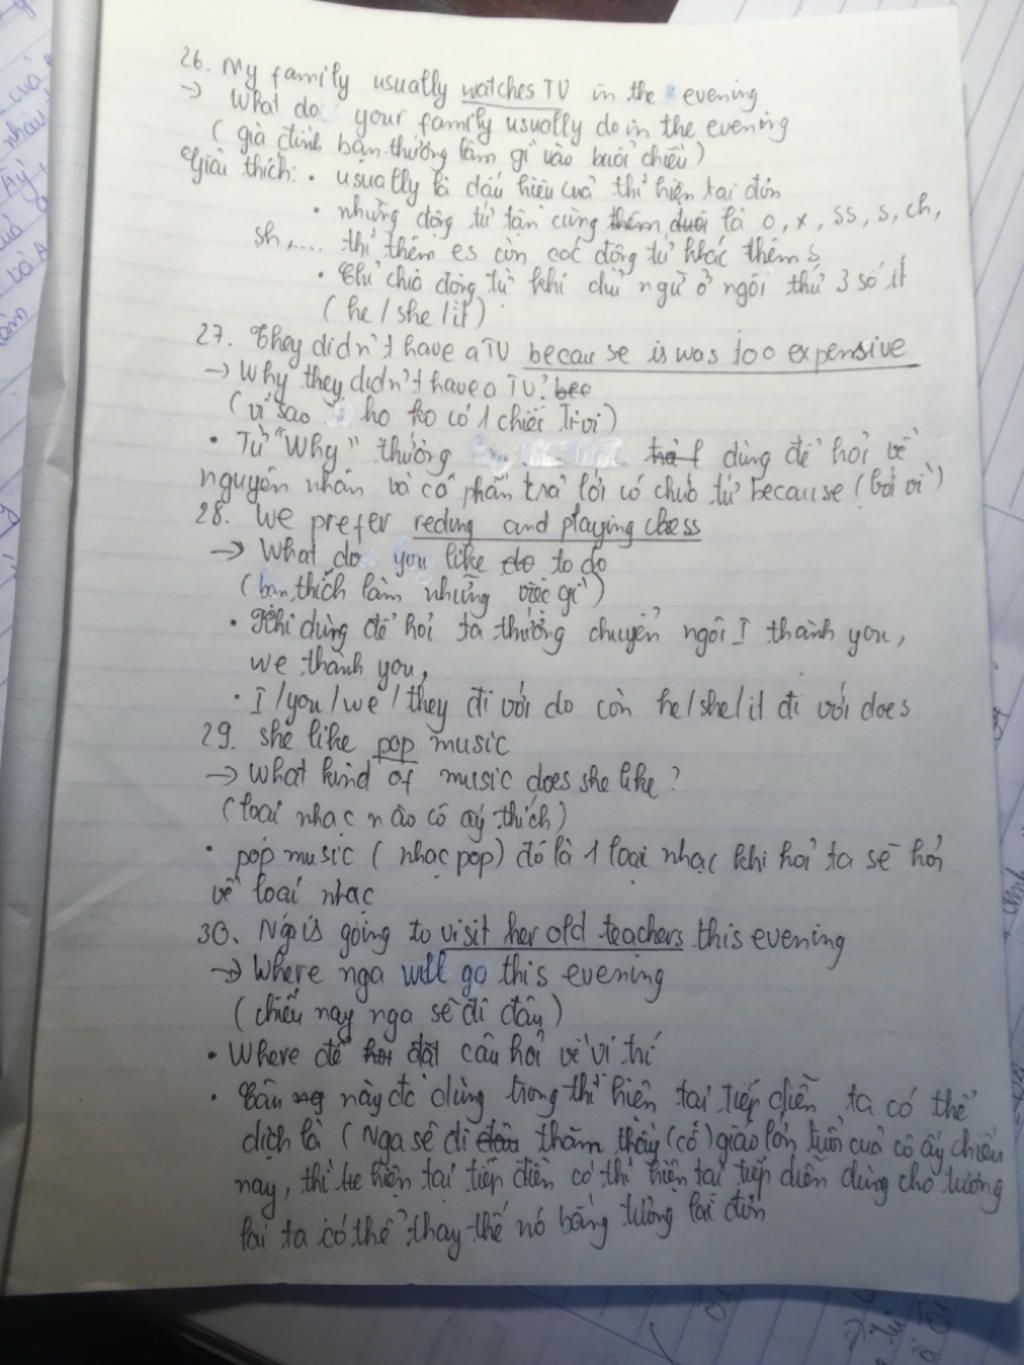 26. My family usually watches TV in the evening
→ What do your family usually do in the evening
( gia đình bạn thường làm gì vào buổi chiều )
Giải thích: • usually là dấu hiệu của thì hiện tại đơn
• những động từ tận cùng thêm đuôi là o, x, ss, s, ch,
sh,.... thì thêm es còn các động từ khác thêm s
• Chỉ chia động từ khi chủ ngữ ở ngôi thứ 3 số ít
( he / she / it )
27. They didn't have a TV because is was too expensive
→ Why they didn't have a TV? bec
( vì sao họ ko có 1 chiếc Tivi )
• Từ "Why" thường trả l dùng để hỏi về
nguyên nhân và có phần trả lời có chứa từ because ( bởi vì )
28. We prefer reding and playing chess
→ What do you like do to do
( bạn thích làm những việc gì )
• Khi dùng để hỏi ta thường chuyển ngôi I thành you,
we thành you,
• I / you / we / they đi với do còn he / she / it đi với does
29. she like pop music
→ What kind of music does she like?
( loại nhạc nào cô ấy thích )
• pop music ( nhạc pop ) đó là 1 loại nhạc khi hỏi ta sẽ hỏi
về loại nhạc
30. Nga is going to visit her old teachers this evening
→ Where nga will go this evening
( chiều nay nga sẽ đi đâu )
• Where để hỏi đặt câu hỏi về vị trí
• Câu này đc dùng trong thì hiện tại tiếp diễn ta có thể
dịch là ( Nga sẽ đi đâu thăm thầy (cô) giáo lớn tuổi của cô ấy chiều
nay, thì hiện tại tiếp diễn có thì hiện tại tiếp diễn dùng cho tương
lai ta có thể thay thế nó bằng tương lai đơn